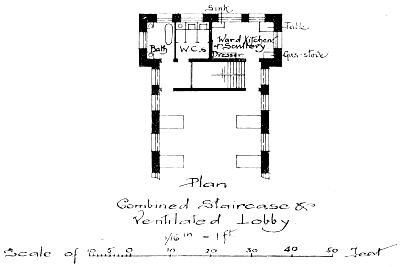 Sink
Table
Bath
W.C.s
Ward Kitchen
or Scullery
Dresser
Gas-stove
Plan
Combined Staircase &
Ventilated Lobby
1/16 in = 1 ft
Scale of 10 5 0 10 20 30 40 50 Feet